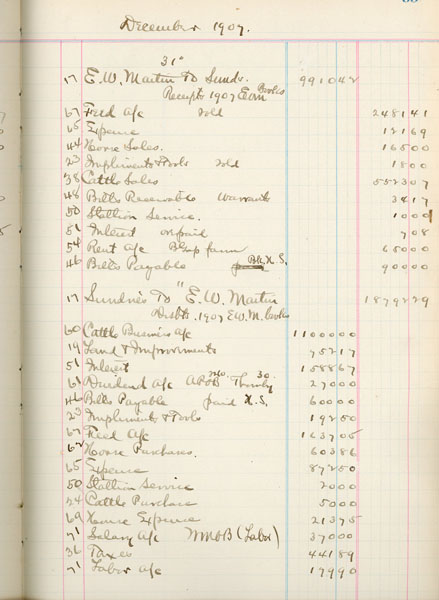 December 1907.
31"
17 E.W. Martin To Sunds. 991042
Receipts 1907 EWM Books
67 Feed a/c sold 248141
65 Expense 12169
44 Horse Sales. 16500
23 Implements & Tools sold 1800
38 Cattle Sales 552307
48 Bills Receivable Warrants 3417
50 Stallion Service. 1000
51 Interest on paid 708
54 Rent a/c farm 65000
46 Bills Payable Bk. X.S. 90000
17 Sundries To "E.W. Martin 1879279
Disbts. 1907 E.W.M. books
60 Cattle Business a/c 1100000
19 Land & Improvements 75217
51 Interest 158867
61 Dividend a/c 30. 27000
46 Bills Payable paid X.S. 60000
23 Implements & Tools 19250
67 Feed a/c 163705
62 Horse Purchases. 60386
65 Expense 87250
50 Stallion Service 2000
24 Cattle Purchase 5000
69 House Expense 21375
71 Salary a/c WMOB (Labor) 37000
36 Taxes 44189
71 Labor a/c 17990